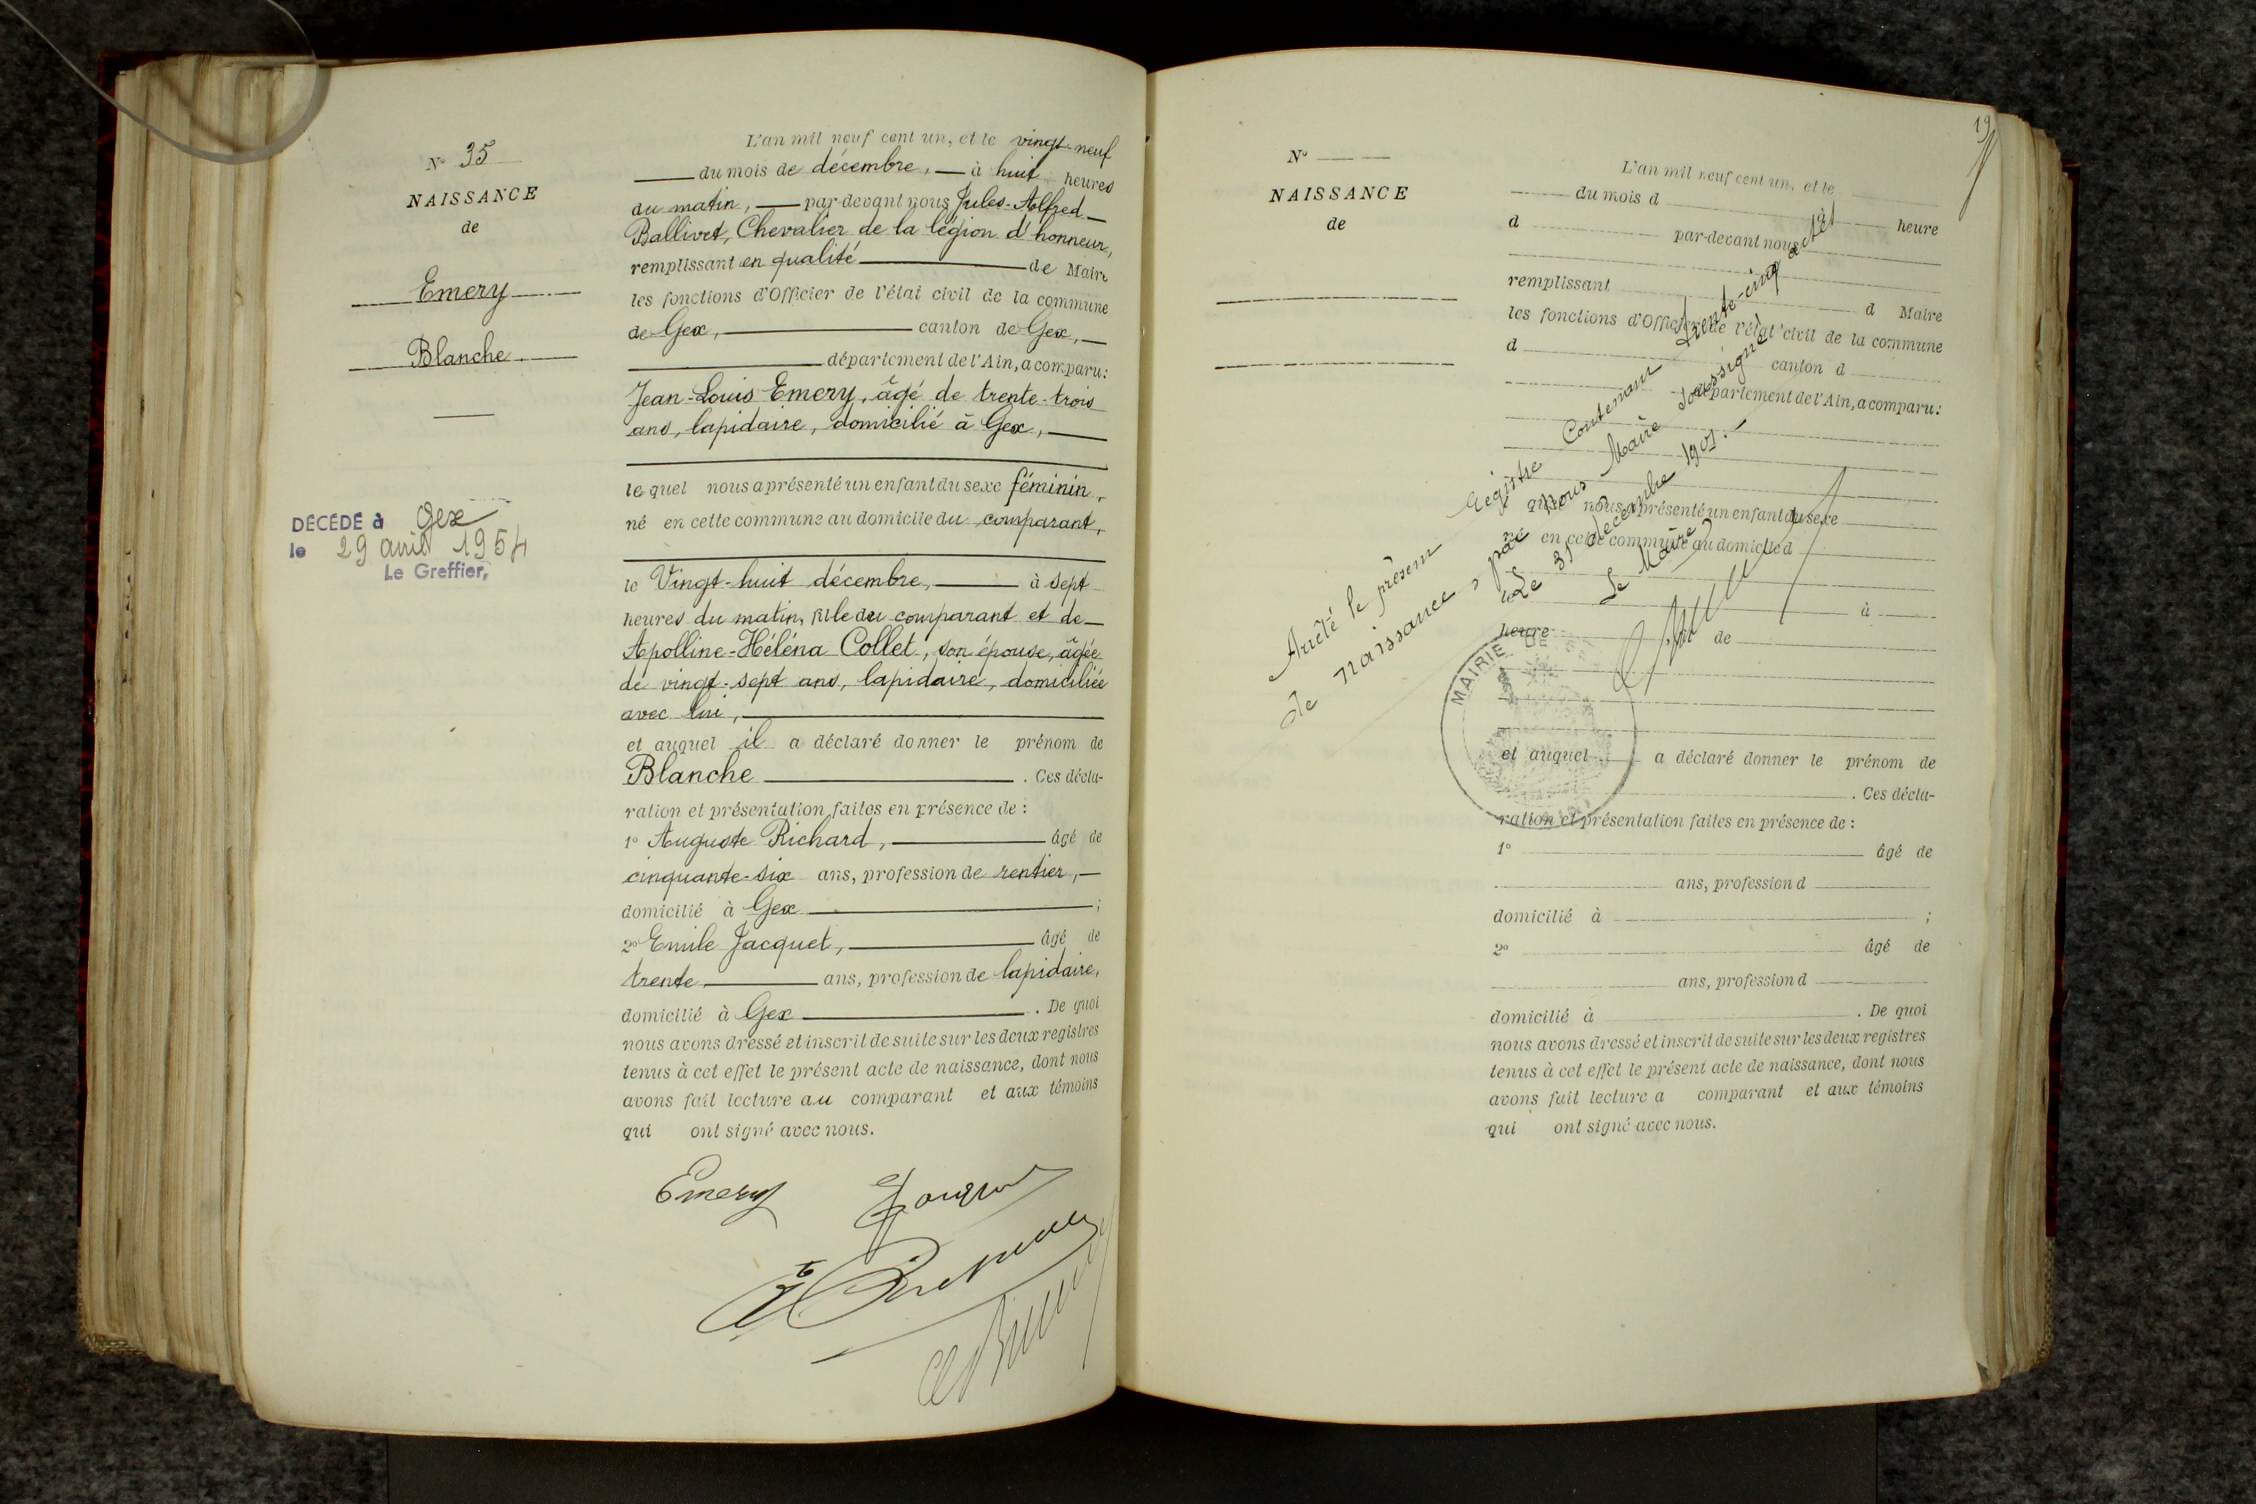 N° 35
NAISSANCE
de
Emery
Blanche
DÉCÉDÉ à Gex
le 29 avril 1954
Le Greffier,
L'an mil neuf cent un, et le vingt-neuf
du mois de décembre, à huit heures
du matin, par-devant nous Jules-Alfred
Ballivet, Chevalier de la légion d'honneur,
remplissant en qualité de Maire
les fonctions d'Officier de l'état civil de la commune
de Gex, canton de Gex,
département de l'Ain, a comparu:
Jean-Louis Emery, âgé de trente-trois
ans, lapidaire, domicilié à Gex,
le quel nous a présenté un enfant du sexe féminin,
né en cette commune au domicile du comparant,
le Vingt-huit décembre, à sept
heures du matin, fille du comparant et de
Apolline-Héléna Collet, son épouse, âgée
de vingt-sept ans, lapidaire, domiciliée
avec lui,
et auquel il a déclaré donner le prénom de
Blanche . Ces décla-
ration et présentation faites en présence de :
1° Auguste Richard, âgé de
cinquante-six ans, profession de rentier,
domicilié à Gex ;
2° Emile Jacquet, âgé de
trente ans, profession de lapidaire,
domicilié à Gex . De quoi
nous avons dressé et inscrit de suite sur les deux registres
tenus à cet effet le présent acte de naissance, dont nous
avons fait lecture au comparant et aux témoins
qui ont signé avec nous.
Emery
19
N°
NAISSANCE
de
L'an mil neuf cent un, et le
du mois d à heure
d par-devant nous
remplissant d Maire
les fonctions d'Officier de l'état civil de la commune
d canton d
département de l'Ain, a comparu:
quel nous a présenté un enfant du sexe
né en cette commune au domicile d
le à
heure de
et auquel a déclaré donner le prénom de
. Ces décla-
ration et présentation faites en présence de :
1° âgé de
ans, profession d
domicilié à ;
2° âgé de
ans, profession d
domicilié à . De quoi
nous avons dressé et inscrit de suite sur les deux registres
tenus à cet effet le présent acte de naissance, dont nous
avons fait lecture a comparant et aux témoins
qui ont signé avec nous.
Arrêté le présent Régistre Contenant trente-cinq actes
de naissance, par Nous Maire soussigné
Le 31 décembre 1901.
Le Maire
MAIRIE DE